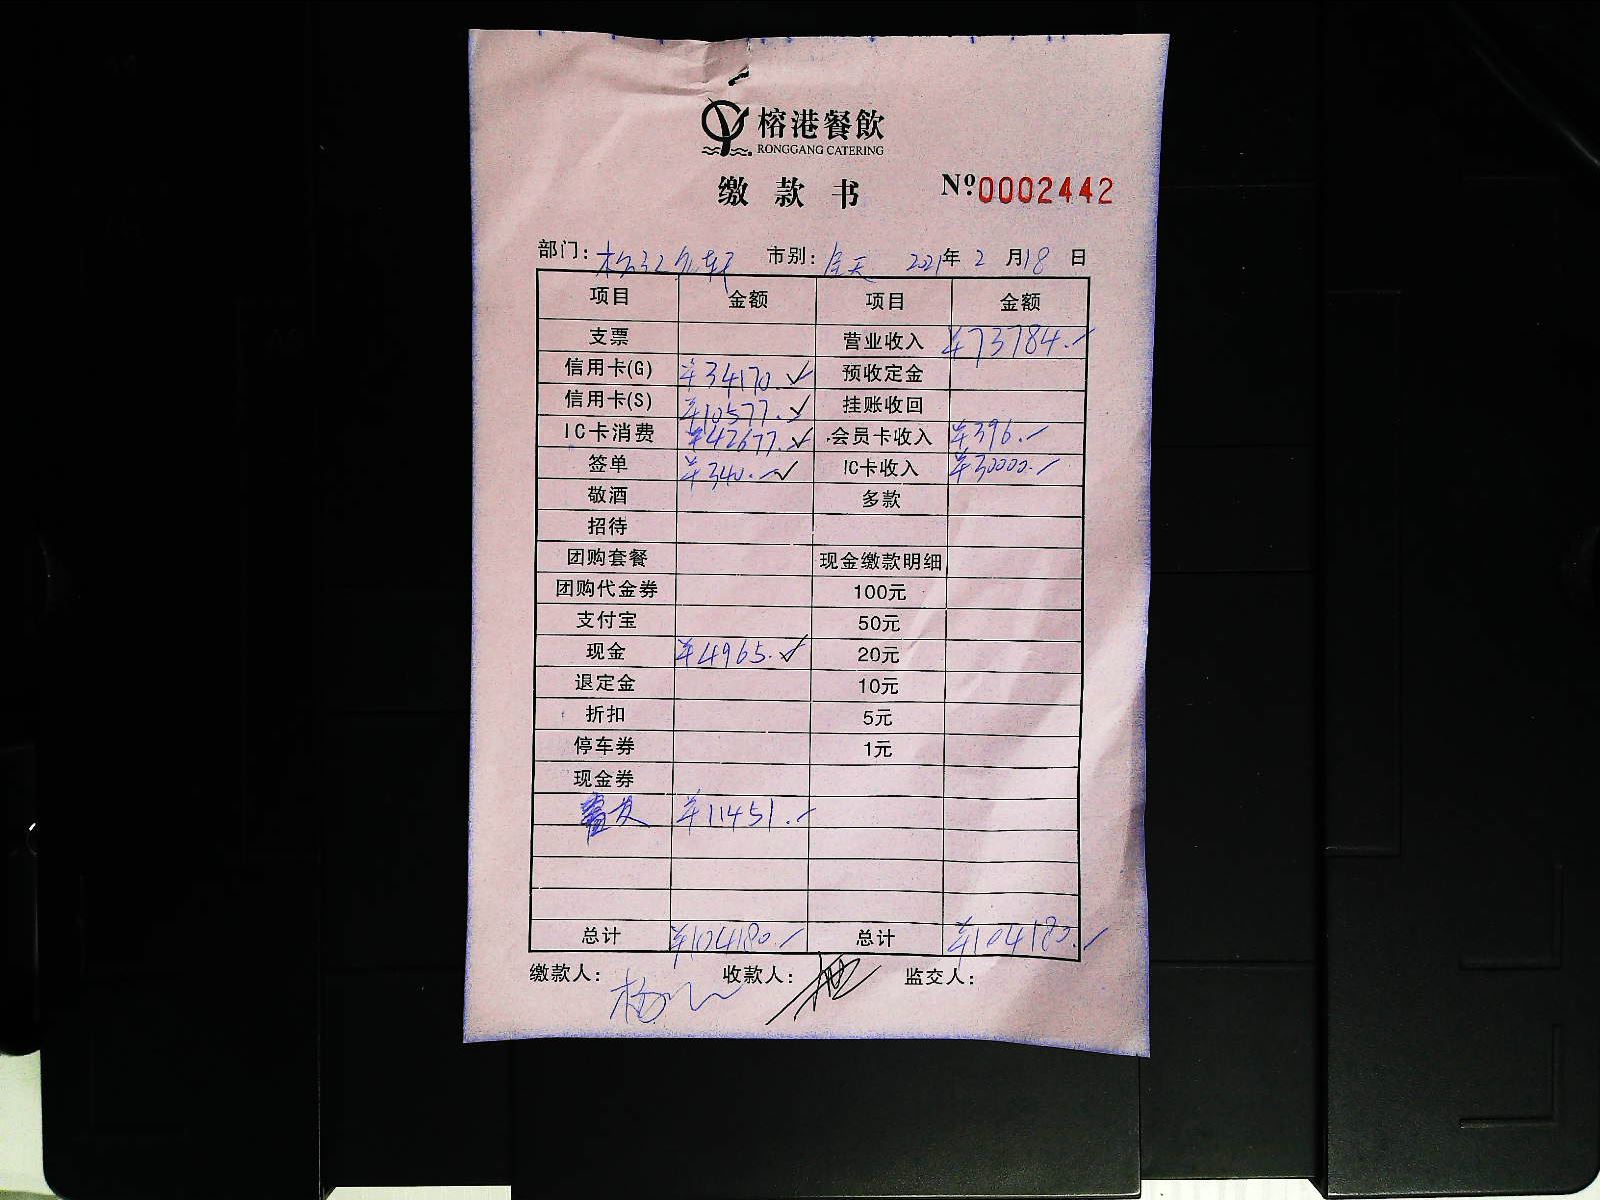 榕港餐飲
RONGGANG CATERING
缴款书 №0002442
部门: 市别: 全天 2021年 2 月18日
项目 金额 项目 金额
支票 营业收入 ¥73784.
信用卡(G) ¥34170. 预收定金
信用卡(S) ¥10577. 挂账收回
IC卡消费 ¥42677. 会员卡收入 ¥396.
签单 ¥340. IC卡收入 ¥30000.
敬酒 多款
招待
团购套餐 现金缴款明细
团购代金券 100元
支付宝 50元
现金 ¥4965. 20元
退定金 10元
折扣 5元
停车券 1元
现金券
¥11451.
总计 ¥104180. 总计 ¥104180.
缴款人: 收款人: 监交人: